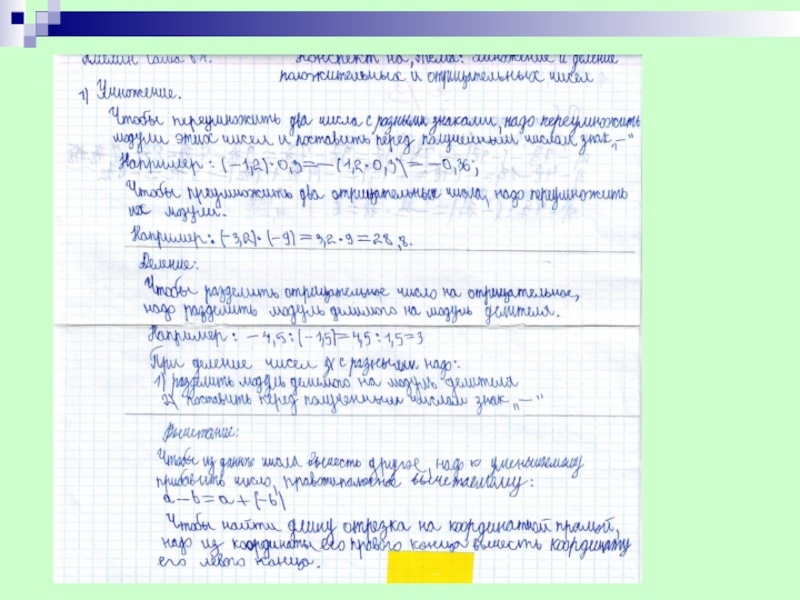 Саша 6 Конспект на „Тема: Умножение и деление
положительных и отрицательных чисел
1) Умножение.
Чтобы переумножить два числа с разными знаками, надо переумножить
модули этих чисел и поставить перед полученным числом знак „—“
Например: (−1,2)·0,3=−(1,2·0,3)=−0,36;
Чтобы преумножить два отрицательных числа, надо переумножить
их модули.
Например: (−3,2)·(−9)=3,2·9=28,8.
Деление:
Чтобы разделить отрицательное число на отрицательное,
надо разделить модуль делимого на модуль делителя.
Например: −4,5:(−1,5)=4,5:1,5=3
При деление чисел с разными надо:
1) разделить модуль делимого на модуль делителя
2) поставить перед полученным числом знак „—“
Вычитание:
Чтобы из данного числа вычесть другое, надо к уменьшаемому
прибавить число, противоположное вычитаемому:
a−b=a+(−b)
Чтобы найти длину отрезка на координатной прямой,
надо из координаты его правого конца вычесть координату
его левого конца.